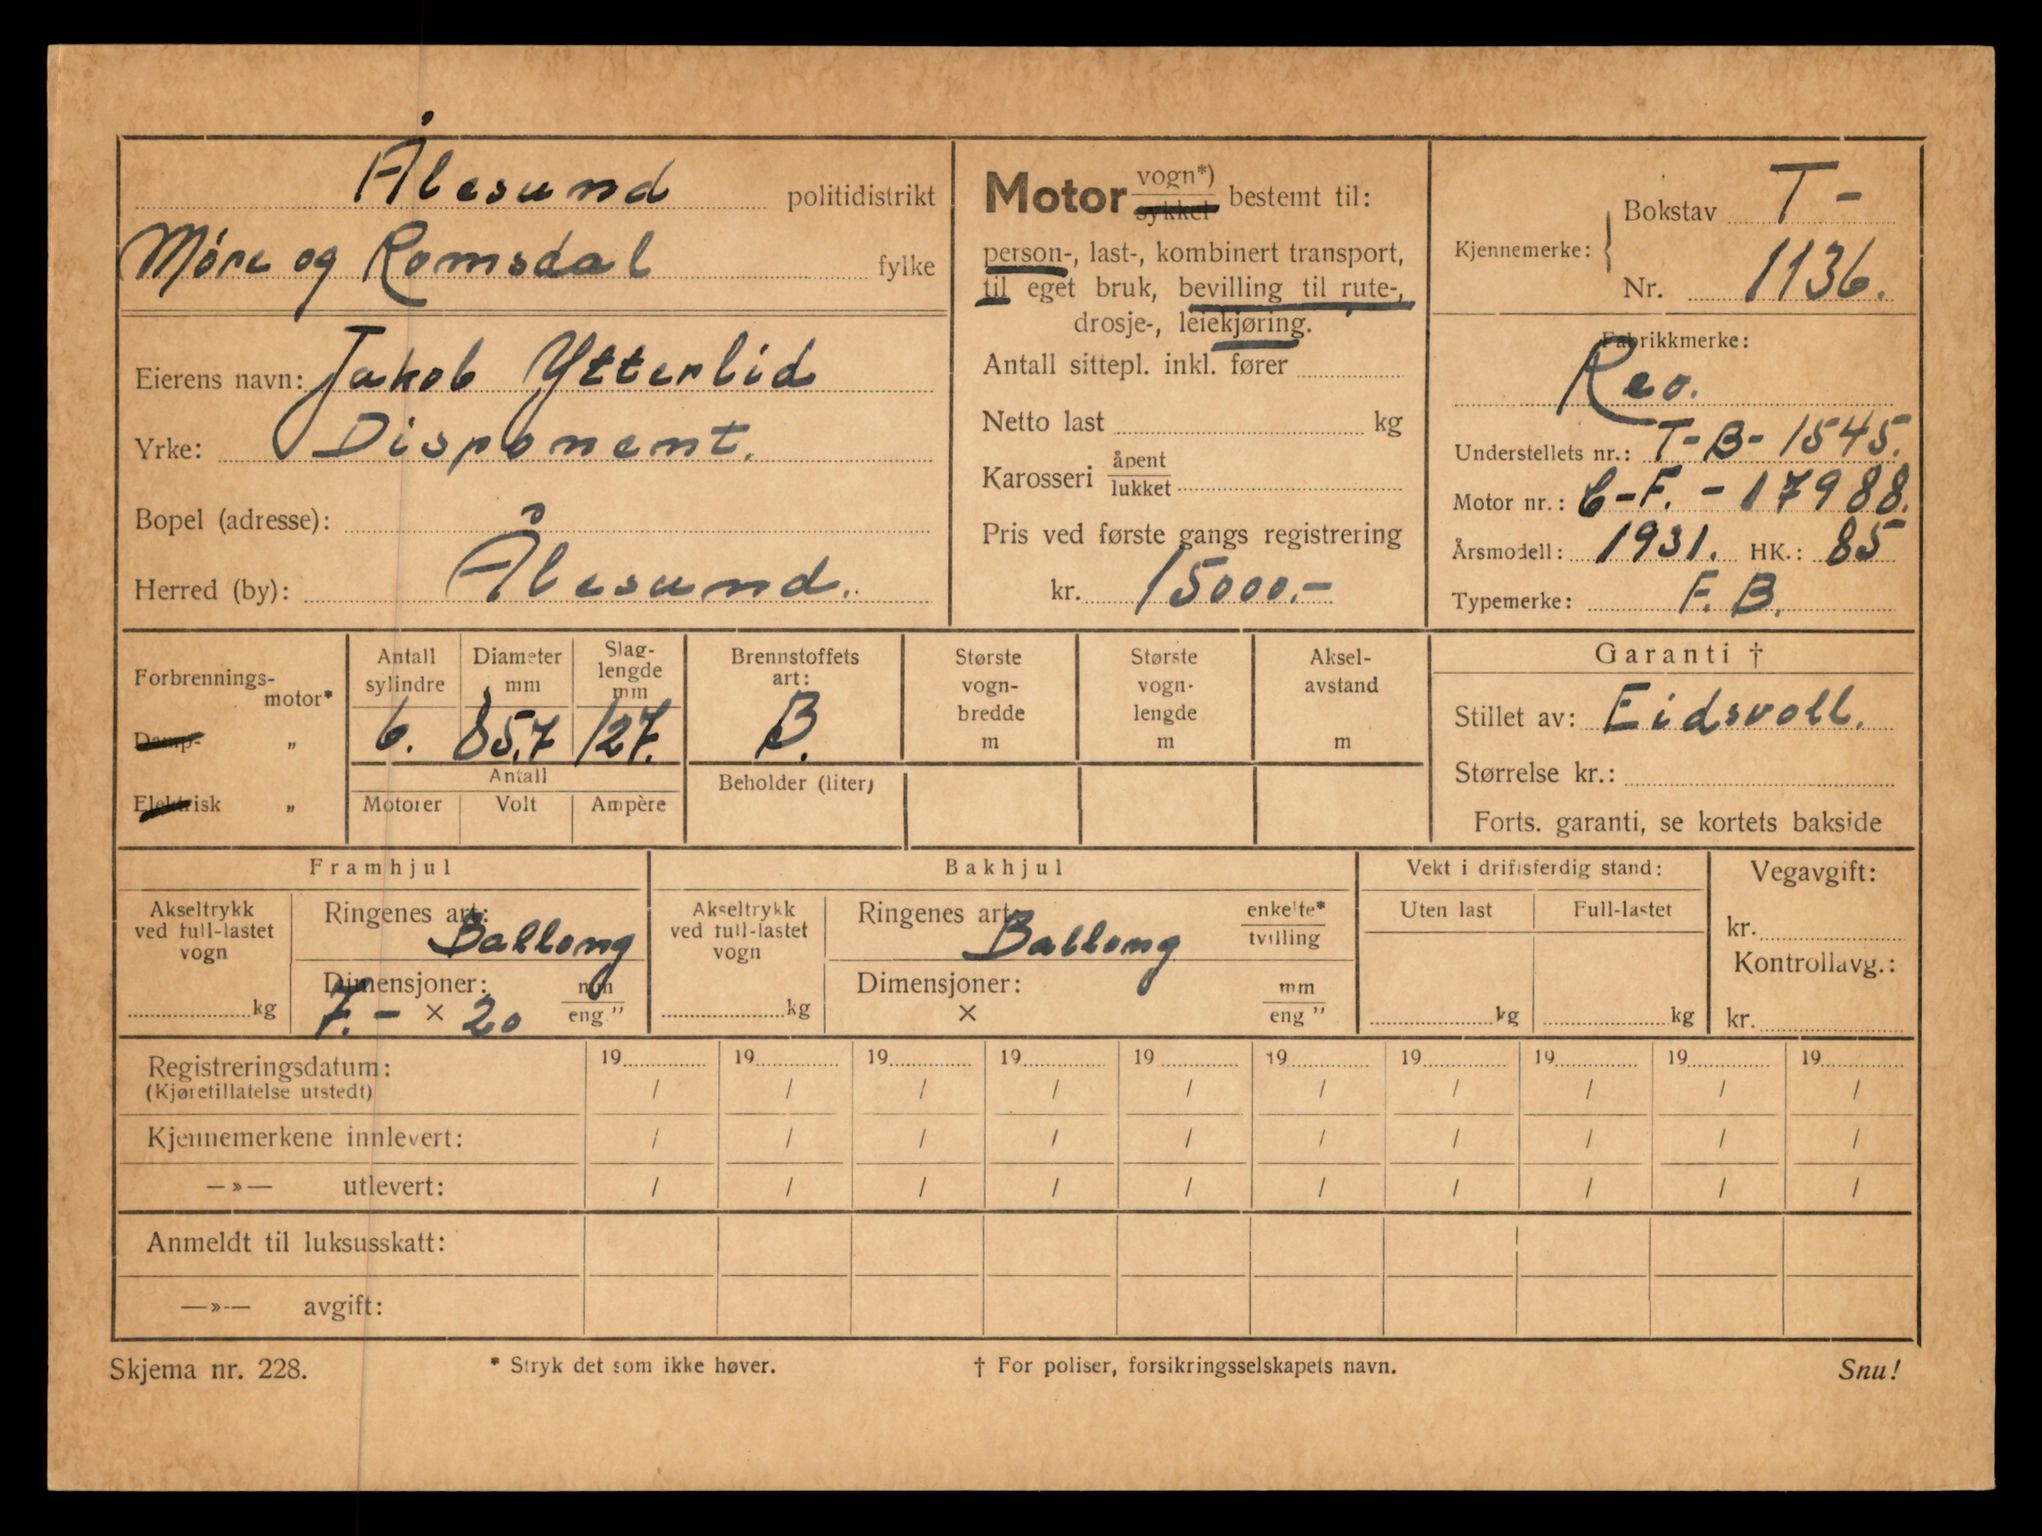 Ålesund politidistrikt
Møre og Romsdal fylke
Eierens navn: Jakob Ytterlid
Yrke: Disponent.
Bopel (adresse):
Herred (by): Ålesund.
Motor vogn*) sykkel bestemt til:
person-, last-, kombinert transport,
til eget bruk, bevilling til rute-,
drosje-, leiekjøring.
Antall sittepl. inkl. fører
Netto last kg
Karosseri åpent lukket
Pris ved første gangs registrering
kr. 15000.-
Kjennemerke: Bokstav T-
Nr. 1136.
Fabrikkmerke:
Reo.
Understellets nr.: T-B-1545.
Motor nr.: 6-F.-17988.
Årsmodell: 1931. HK.: 85
Typemerke: F.B.
Forbrennings-motor*
Damp- „
Elektrisk „
Antall sylindre
6.
Diameter mm
85.7
Slag-lengde mm
127.
Antall
Motorer Volt Ampère
Brennstoffets art:
B.
Beholder (liter)
Største vogn-bredde m
Største vogn-lengde m
Aksel-avstand m
Garanti †
Stillet av: Eidsvoll.
Størrelse kr.:
Forts. garanti, se kortets bakside
Framhjul
Akseltrykk ved full-lastet vogn
kg
Ringenes art:
Ballong
Dimensjoner: mm
7.- × 20 eng "
Bakhjul
Akseltrykk ved full-lastet vogn
kg
Ringenes art: enkelte* tvilling
Ballong
Dimensjoner: mm
× eng "
Vekt i driftsferdig stand:
Uten last Full-lastet
kg kg
Vegavgift:
kr.
Kontrollavg.:
kr.
Registreringsdatum: 19 19 19 19 19 19 19 19 19 19
(Kjøretillatelse utstedt) / / / / / / / / / /
Kjennemerkene innlevert: / / / / / / / / / /
—»— utlevert: / / / / / / / / / /
Anmeldt til luksusskatt:
—»— avgift:
Skjema nr. 228. * Stryk det som ikke høver. † For poliser, forsikringsselskapets navn. Snu!